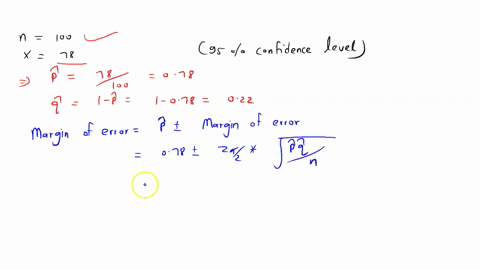 n = 100
x = 78
(95 % confidence level)
⇒ p̂ = 78/100 = 0.78
q̂ = 1-p̂ = 1-0.78 = 0.22
Margin of error = p̂ ± Margin of error
= 0.78 ± Zα/2 * √(p̂q̂/n)